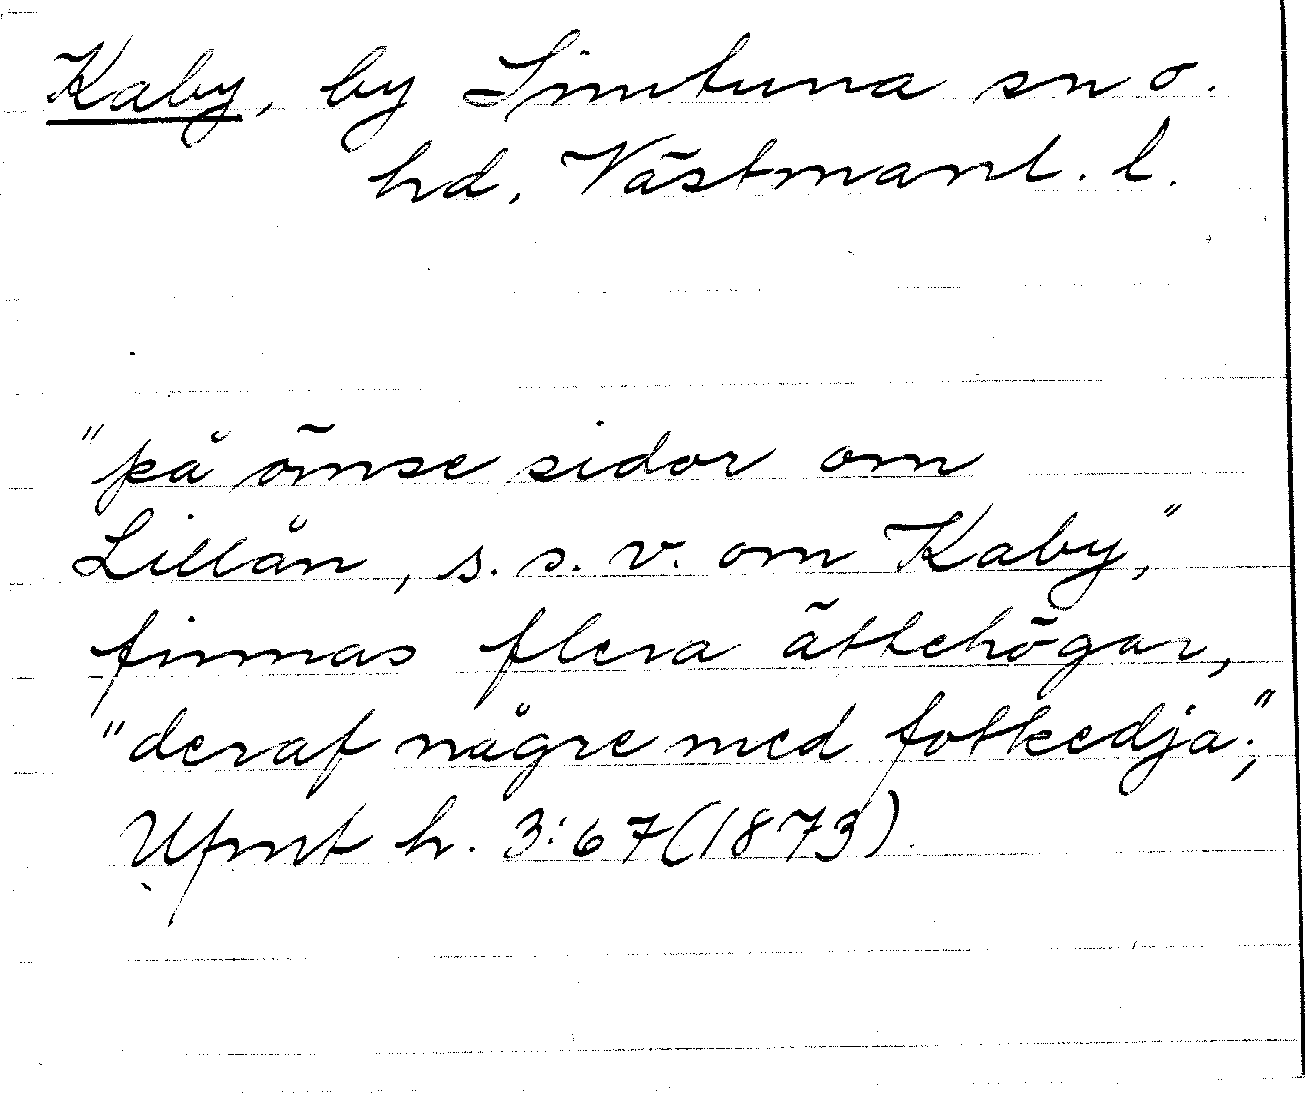 Kaby, by Simtuna sn o.
hd, Västmanl. l.
"på ömse sidor om
Lillån, s. s. v. om Kaby,"
finnas flera ättehögar,
"deraf någre med fotkedja;"
Ufmt h. 3:67 (1873)